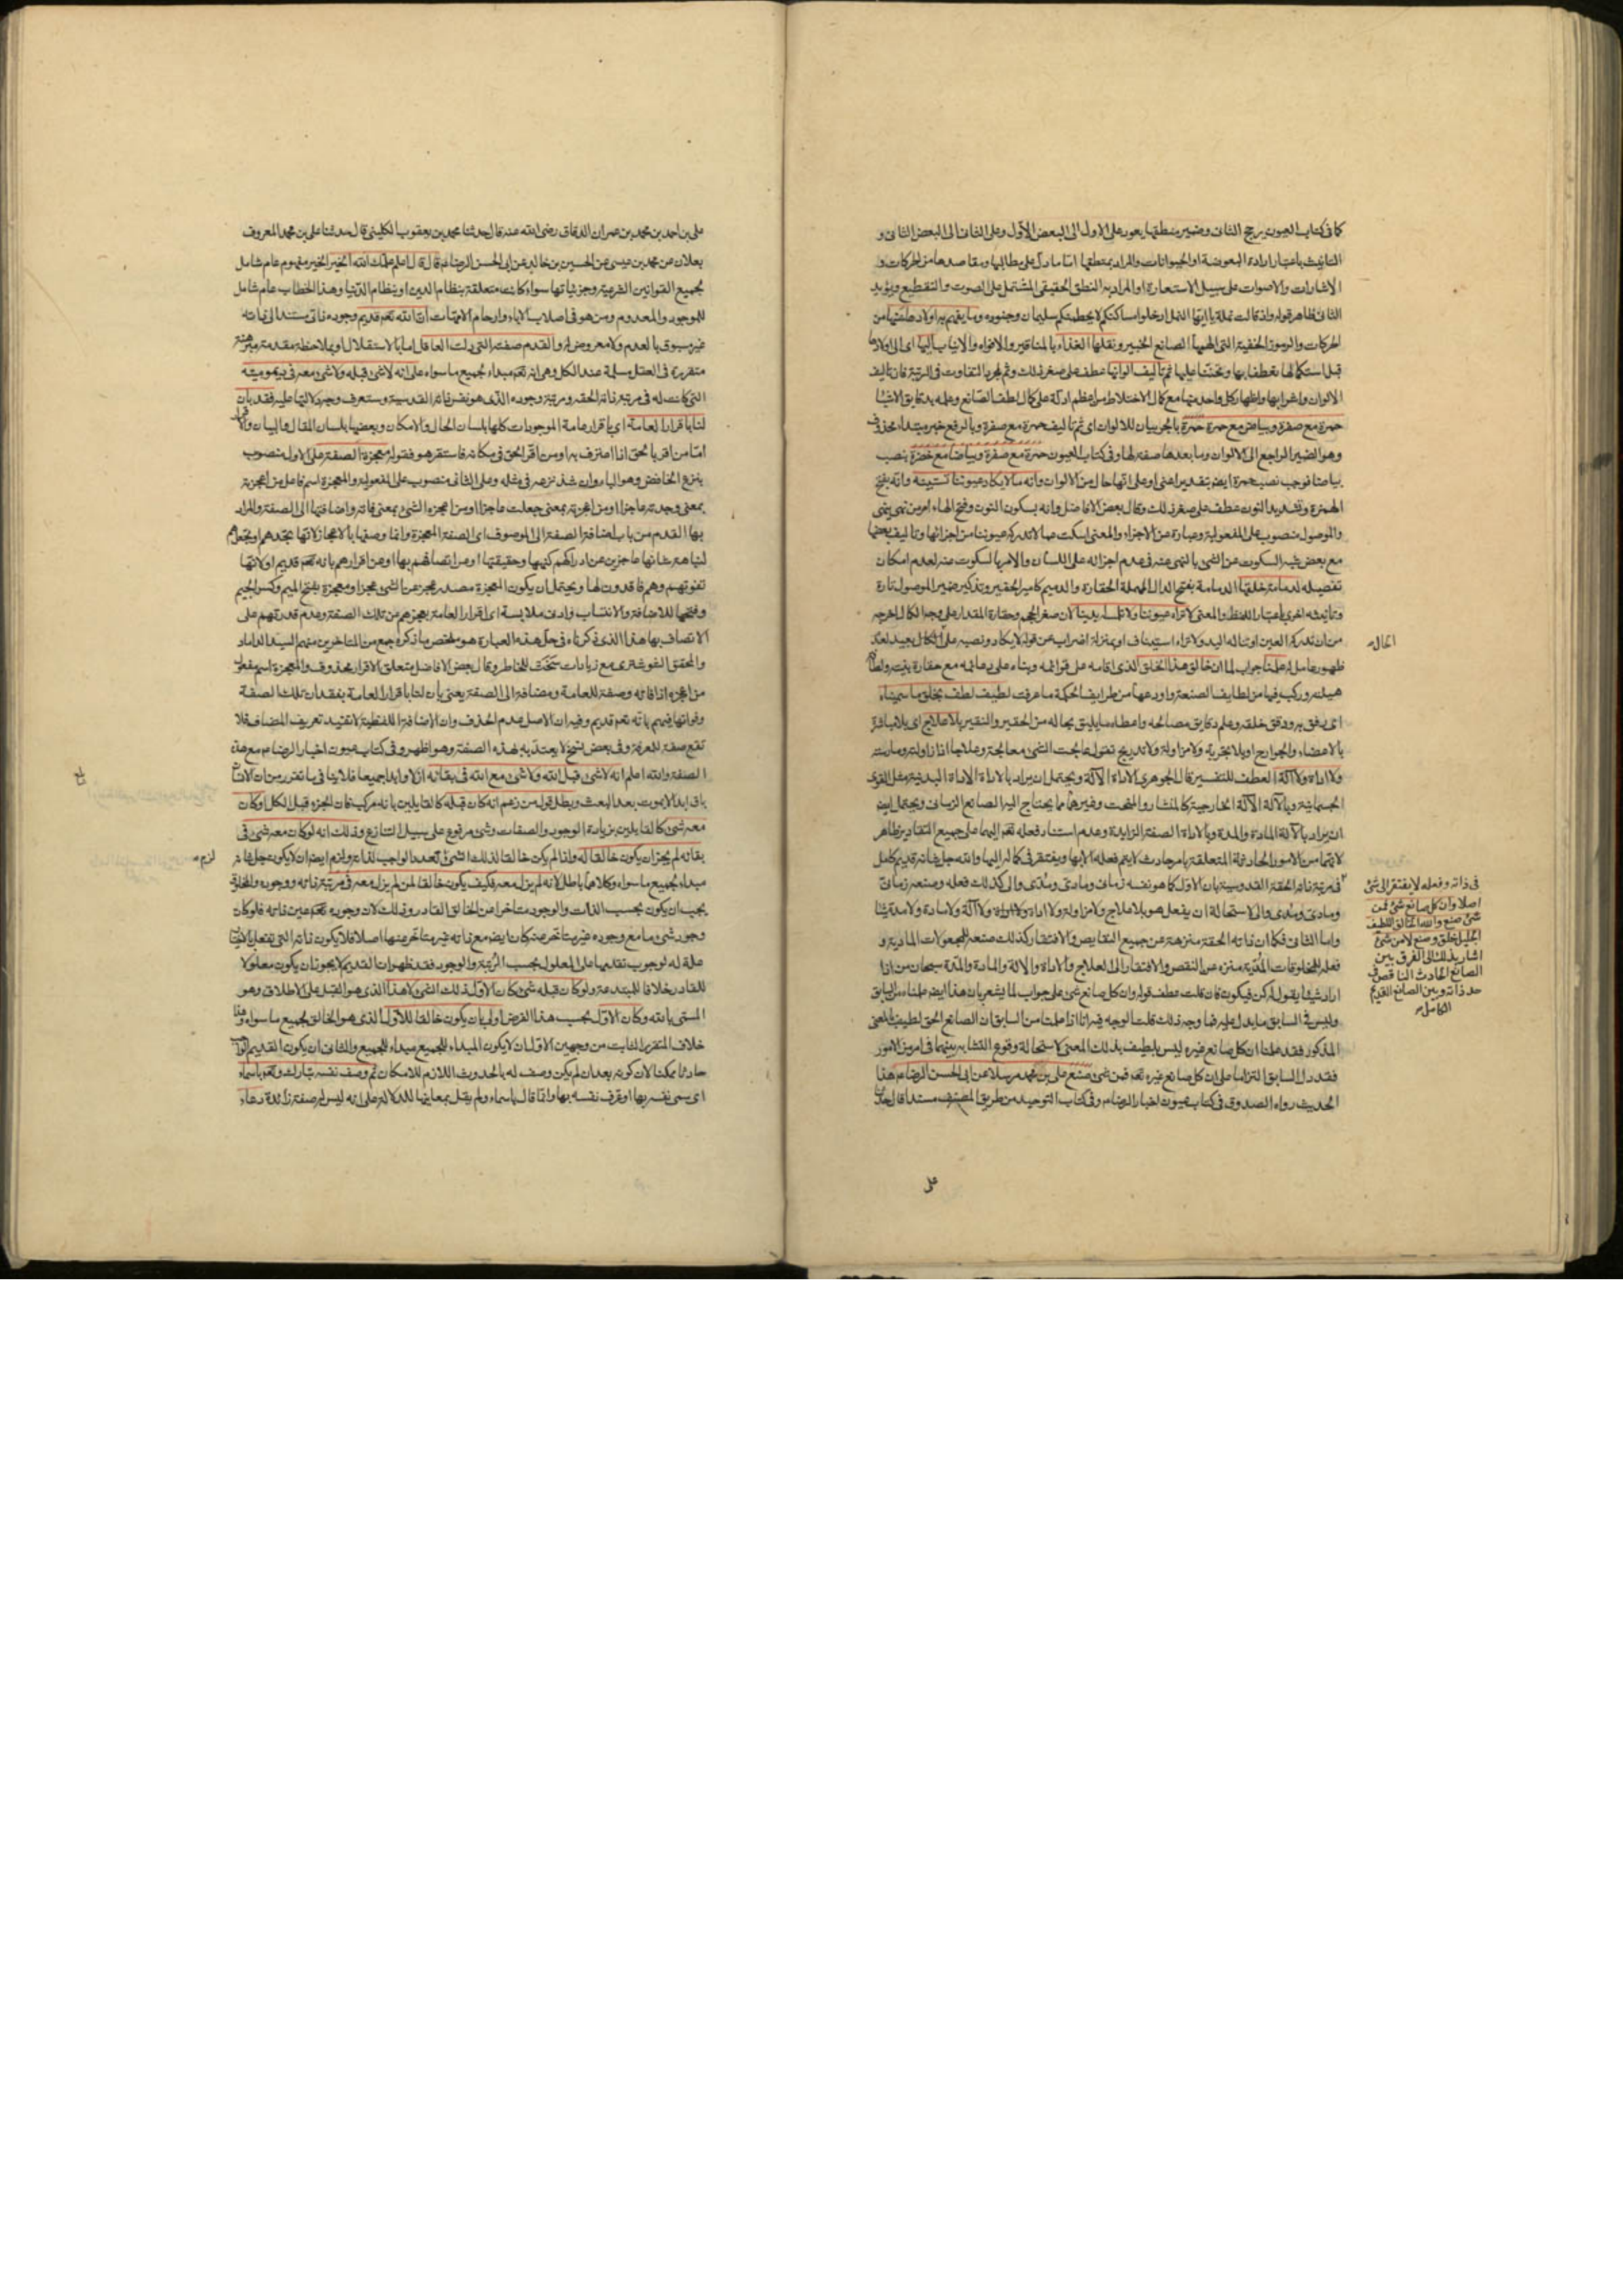 كما في كتاب العيون يرجح الثاني وضمير منطقها يعود على الاول الى البعض الاول وعلى الثاني الى البعض الثاني و
التانيث باعتبار ارادة البعوضة او الحيوانات والمراد بمنطقها اما ما دل على مطالبها ومقاصدها من الحركات و
الاشارات والاصوات على سبيل الاستعارة او المراد به النطق الحقيقي المشتمل على الصوت والتقطيع ويؤيد
الثاني ظاهر قوله واذ قالت نملة يا ايها النمل ادخلوا مساكنكم لا يحطمنكم سليمان وجنوده وما يفهم به اولادها عنها من
الحركات والرموز الخفية التي الهمها الصانع الخبير ونقلها الغذاء بالمناقير والافواه والانياب اليها اى الى اولادها
قبل استكمالها بعطفها وتحننها عليها ثم تاليف الوانها عطف على صغر ذلك وثم لمجرد التفاوت في الرتبة فان تاليف
الالوان واظهار كل واحد منها مع كمال الاختلاط من اعظم ادلة على كمال لطف الصانع وعلمه بدقايق الاشيا
حمرة مع صفرة وبياض مع حمرة حمرة بالجر بيان للالوان اى ثم تاليف حمرة مع صفرة وبالرفع خبر مبتداء محذوف
وهو الضمير الراجع الى الالوان وما بعدها صفة لها وفي كتاب العيون حمرة مع صفرة وبياضا مع خضرة بنصب
بياضا فوجب نصب حمرة ايض بتقدير اعنى او على انها حال من الالوان وانه ما لا يكاد عيوننا تستبينه وانه بفتح
الهمزة وتشديد النون عطف على صغر ذلك وقال بعض الافاضل وانه بسكون النون وفتح الهاء امر من نهى ينهى
والموصول منصوب على المفعولية وعبارة عن الاجزاء والمعنى اسكت عما لا تدركه عيوننا من اجزائها وتاليف بعضها
مع بعض شبه السكوت عن الشى بالنهى عنه في عدم اجرائه على اللسان والامر بالسكوت عنه لعدم امكان
تفصيله لدمامة خلقها الدمامة بفتح الدال المهملة الحقارة والدميم كامير الحقير وتذكير ضمير الموصول تارة
وتانيثه اخرى باعتبار اللفظ والمعنى لا تراه عيوننا ولا تلمسه ايدينا لان صغر الحجم وحقارة المقدار على وجه الكمال اخرجه
من ان تدركه العين او تناله اليد ولا تراه استيناف او بمنزلة اضراب عن قوله لا يكاد ونصبه على الحال بعيد لعدم
ظهور عامل له علمنا جواب لما ان خالق هذا الخلق الذى اقامه على قوائمه وبناه على دعائمه مع حقارة بنيته ولطافة
هيئته وركب فيها من لطايف الصنعة واودعها من طرايف الحكمة ما عرفت لطيف لطف بخلق ما سميناه
اى رفق به ودقق خلقه وعلم دقايق مصالحه واعطاه ما يليق بحاله من الحقير والنقير بلا علاج اى بلا مباشرة
بالاعضاء والجوارح او بلا تجربة ولا مزاولة ولا تدريج تقول عالجت الشى معالجة وعلاجا اذا زاولته ومارسته
ولا اداة ولا آلة العطف للتفسير قال الجوهرى الاداة الآلة ويحتمل ان يراد بالاداة الاداة البدنية مثل القوى
الجسمانية وبالآلة الآلة الخارجية كالمنشار والمنحت وغيرهما مما يحتاج اليه الصانع الزمانى ويحتمل ايض
ان يراد بالآلة المادة والمدة وبالاداة الصفة الزايدة وعدم استناد فعله تعم اليهما على جميع التقادير ظاهر
لانهما من الامور الحادثة المتعلقة بامر حادث لا يتم فعله الا بها ويفتقر في كماله اليها والله جل شانه قديم كامل
في مرتبة ذاته الحقة القدوسية بان الاول كما هو نفسه زمانى ومادى ومدّى والى كذلك فعله وصنعه زمانى
ومادى ومدى والى لاستحالة ان يفعل هو بلا علاج ولا مزاولة ولا اداة ولا آلة ولا مادة ولا مدة شيئا
واما الثانى فكما ان ذاته الحقة منزهة عن جميع النقايص والافتقار كذلك صنعه للمجعولات المادية و
فعله للمخلوقات المدّية منزه عن النقص والافتقار الى العلاج والاداة والالة والمادة والمدة سبحان من اذا
اراد شيئا يقول له كن فيكون فان قلت عطف قوله وان كل صانع شى على جواب لما يشعر بان هذا ايضا علمناه من السابق
وليس في السابق ما يدل عليه فما وجه ذلك قلت الوجه فيه انا اذا علمنا من السابق ان الصانع الحق لطيف بالمعنى
المذكور فقد علمنا ان كل صانع غيره ليس بلطيف بذلك المعنى لاستحالة وقوع التشابه بينهما في امر من الامور
فقد دل السابق التزاما على ان كل صانع غيره تعم فمن شى صنع على بن محمد مرسلا عن ابى الحسن الرضا ع هذا
الحديث رواه الصدوق في كتاب عيون اخبار الرضا ع وفي كتاب التوحيد من طريق المصنف مسندا قال حدثنا
على
الحال
في ذاته وفعله لا يفتقر الى شى
اصلا وان كل صانع شى فمن
شى صنع والله الخالق اللطيف
الجليل خلق وصنع لا من شى
اشار بذلك الى الفرق بين
الصانع الحادث الناقص في
حد ذاته وبين الصانع القديم
الكامل
على بن احمد بن محمد بن عمران الدقاق رضى الله عنه قال حدثنا محمد بن يعقوب الكلينى قال حدثنا على بن محمد المعروف
بعلان عن محمد بن عيسى عن الحسين بن خالد عن ابى الحسن الرضا ع قال قال اعلم علمك الله الخير الخير مفهوم عام شامل
لجميع القوانين الشرعية وجزئياتها سواء كانت متعلقة بنظام الدين او بنظام الدنيا وهذا الخطاب عام شامل
للموجود والمعدوم ومن هو في اصلاب الاباء وارحام الامهات ان الله تعم قديم وجوده ذاتى مستند الى ذاته
غير مسبوق بالعدم ولا معروض له والقدم صفته التى دلت العاقل اما بالاستقلال او بملاحظة مقدمة مبرهنة
متقررة في العقل مسلمة عند الكل وهى انه تعم مبداء لجميع ما سواه على انه لا شى قبله ولا شى معه في ديموميته
التى كانت له في مرتبة ذاته الحقه ومرتبة وجوده الذى هو نفس ذاته القدسية وستعرف وجه دلالتها عليه فقد بان
لنا باقرار العامة اى باقرار عامة الموجودات كلها بلسان الحال والامكان وبعضها بلسان المقال والبيان
اما من اقر بالحق اذا اعترف به او من اقر الحق في مكانه فاستقر هو فقوله معجزة الصفة على الاول منصوب
بنزع الخافض وهو الباء وان شذ نزعه في مثله وعلى الثانى منصوب على المفعولية والمعجزة اسم فاعل من اعجزته
بمعنى وجدته عاجزا او من اعجزته بمعنى جعلته عاجزا او من اعجزه الشى بمعنى فاته واضافتها الى الصفة والمراد
بها القدم من باب اضافة الصفة الى الموصوف اى الصفة المعجزة وانما وصفها بالاعجاز لانها تجدهم او تجعلهم
لنباهة شانها عاجزين عن ادراكهم كنهها وحقيقتها او من اتصافهم بها او عن اقرارهم بانه تعم قديم او لانها
تفوتهم وهم فاقدون لها ويحتمل ان يكون المعجزة مصدر عجز عن الشى عجزا ومعجزة بفتح الميم وكسر الجيم
وفتحها للاضافة والانتساب وادنى ملابسة اى اقرار العامة بعجزهم من تلك الصفة وعدم قدرتهم على
الاتصاف بها هذا الذى ذكرناه في حل هذه العبارة هو ملخص ما ذكره جمع من المتاخرين منهم السيد الداماد
والمحقق الشوشترى مع زيادات سنحت للخاطر وقال بعض الافاضل متعلق الاقرار محذوف والمعجزة اسم مفعول
من اعجزه اذا فاته وصفة للعامة ومضافة الى الصفة يعنى بان لنا باقرار العامة بفقدان تلك الصفة
وفواتها فيهم بانه تعم قديم وفيه ان الاصل عدم الحذف وان الاضافة اللفظية لا تفيد تعريف المضاف فلا
تقع صفة للمعرفة وفي بعض نسخ لا يعتد به لهذه الصفة وهو اظهر وفي كتاب عيون اخبار الرضا ع مع هذه
الصفة والله اعلم انه لا شى قبل الله ولا شى مع الله في بقائه ازلا وابدا جميعا فلا ينافى ما تقرر من ان الانسان
باق ابد الابد بعد البعث وبطل قول من زعم انه كان قبله كالقايلين بانه مركب فان الجزء قبل الكل او كان
معه شى كالقايلين بزيادة الوجود والصفات وشى مرفوع على سبيل التنازع وذلك انه لو كان معه شى في
بقائه لم يجز ان يكون خالقا له واذا لم يكن خالقا لذلك الشى تعدد الواجب لذاته ولزم ايضا ان لا يكون جل شانه
مبداء لجميع ما سواه وكلاهما باطل لانه لم يزل معه فكيف يكون خالقا لمن لم يزل معه في مرتبة ذاته ووجوده والمخلوق
يجب ان يكون بحسب الذات والوجود متاخرا من الخالق القادر وذلك لان وجوده تعم عين ذاته فلو كان
وجود شى ما مع وجوده غير متاخر عنه كان ايض مع ذاته غير متاخر عنها اصلا فلا يكون ذاته التى تفعل الاشيا
علة له لوجوب تقدمها على المعلول بحسب الرتبة والوجود فقد ظهر ان القديم لا يجوز ان يكون معلولا
للقادر خلافا للمبتدعة ولو كان قبله شى كان الاول ذلك الشى لا هذا الذى هو القبل على الاطلاق وهو
المسمى بالله وكان الاول بحسب هذا الفرض اولى بان يكون خالقا للاول الذى هو الخالق لجميع ما سواه وهذا
خلاف المتقرر الثابت من وجهين الاول ان لا يكون المبداء للجميع مبداء للجميع والثانى ان يكون القديم
حادثا ممكنا لان كونه بعد ان لم يكن وصف له بالحدوث اللازم للامكان ثم وصف نفسه تبارك وتعم باسماء
اى سمى نفسه بها او عرف نفسه بها وانما قال باسماء ولم يقل بمعانيها للدلالة على انه ليس له صفة زائدة دعاء
لزم